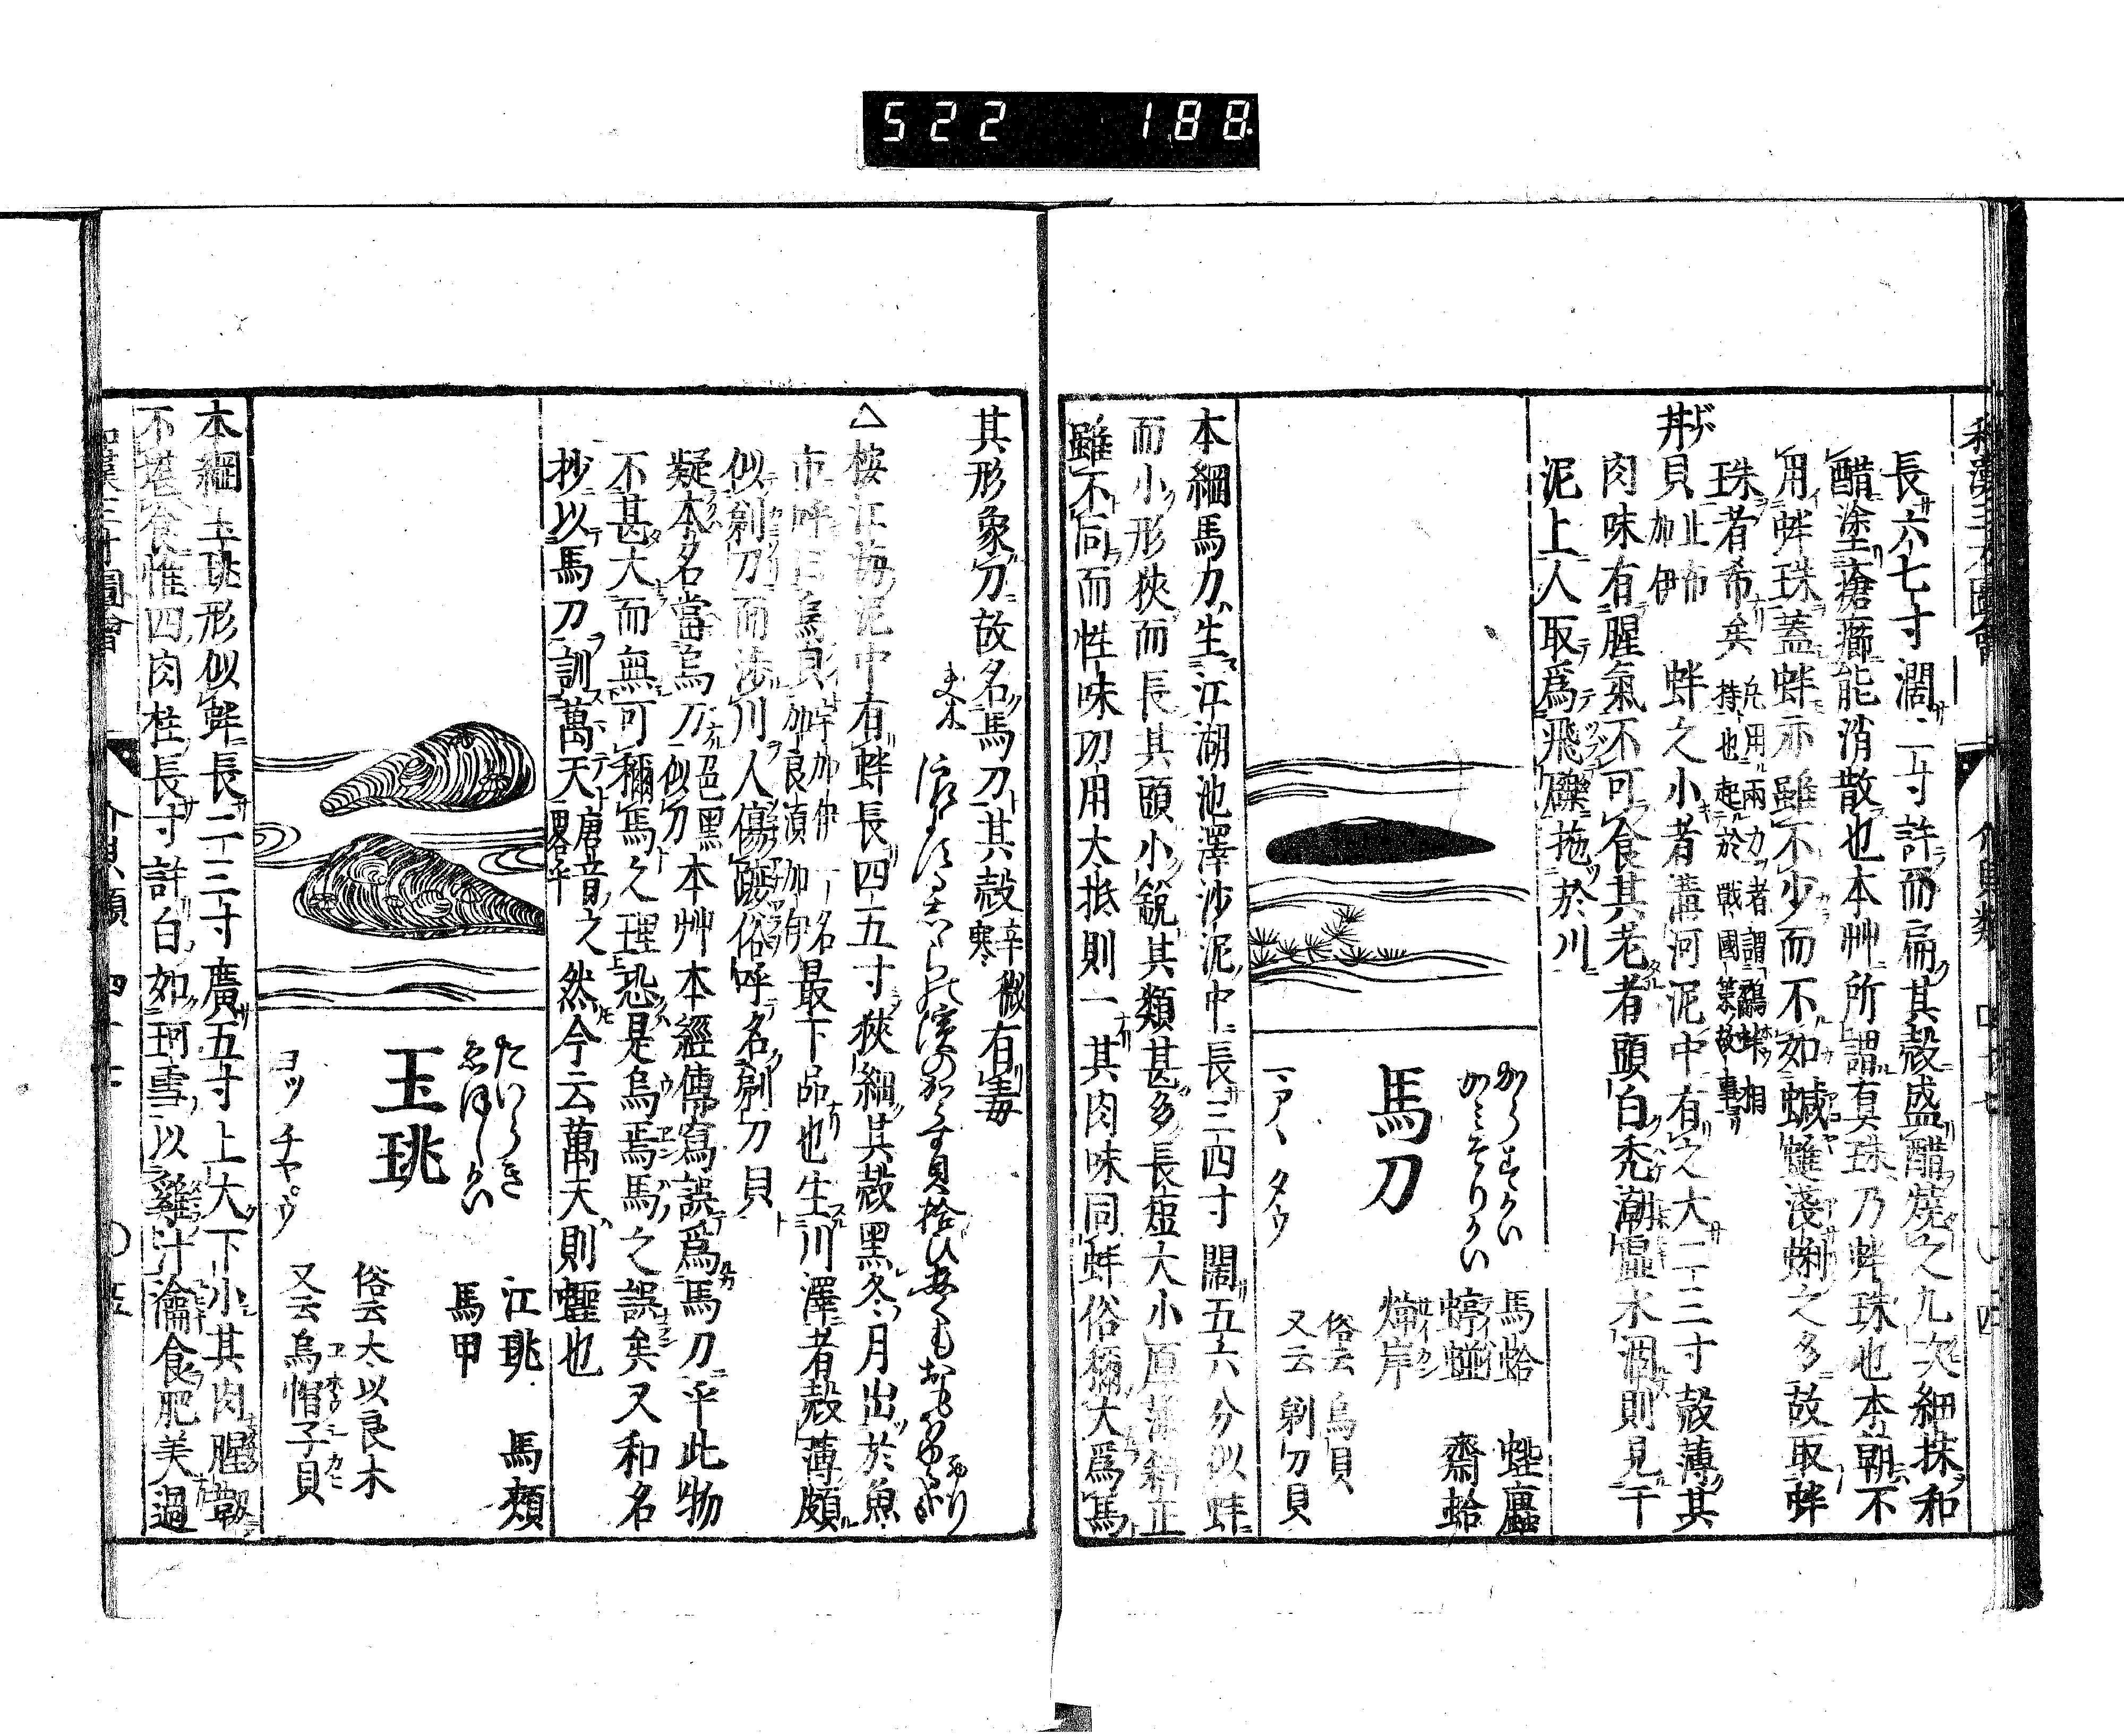 522 188
長六七寸濶二寸許而扁其殼盛醋燒之九次細抹和
醋塗瘡癤能消散也本艸所謂真珠乃蚌珠也本朝不
用蚌珠蓋蚌亦雖不少而不如蝛䗯淺蜊之多故取蚌
珠者希矣
凡用兩刀者謂鷸蚌相
持也起於戰國策故事
丼貝
止布
加伊
蚌之小者溝河泥中有之大二三寸殼薄其
肉味有腥氣不可食其老者頭白禿潮虛水涸則見干
泥上人取爲飛礫拋於川
馬刀
からすかい
かみそりかい
マアヽ タウ
馬蛤
齋蛤
俗云烏貝
又云剃刀貝
本綱馬刀生江湖池澤沙泥中長三四寸闊五六分似蚌
而小形狹而長其頭小銳其類甚多長短大小厚薄斜正
雖不同而性味功用大抵則一其肉味同蚌俗稱大爲馬
其形象刀故名馬刀其殼
辛
寒
微有毒
△按江海泥中有蚌長四五寸狹細其殼黑冬月出於魚
市呼曰烏貝
最下品也生川澤者殼薄頗
似剃刀而涉川人傷蹠俗呼名剃刀貝
疑本名當烏刀
色黑
似刀
本艸本經傳寫誤爲馬刀乎此物
不甚大而無可稱馬之理恐是烏焉馬之誤矣又和名
抄以馬刀訓萬天
唐音之
畧乎
然今云萬天則蟶也
玉珧
たいらき
ゑほしかい
ヨッ チャ゚ウ
江珧 馬頰
馬甲
俗云太以良木
又云烏帽子貝
本綱玉珧形似蚌長二三寸廣五寸上大下小其肉腥韌
不堪食惟四肉柱長寸許白如珂雪以雞汁瀹食肥美過